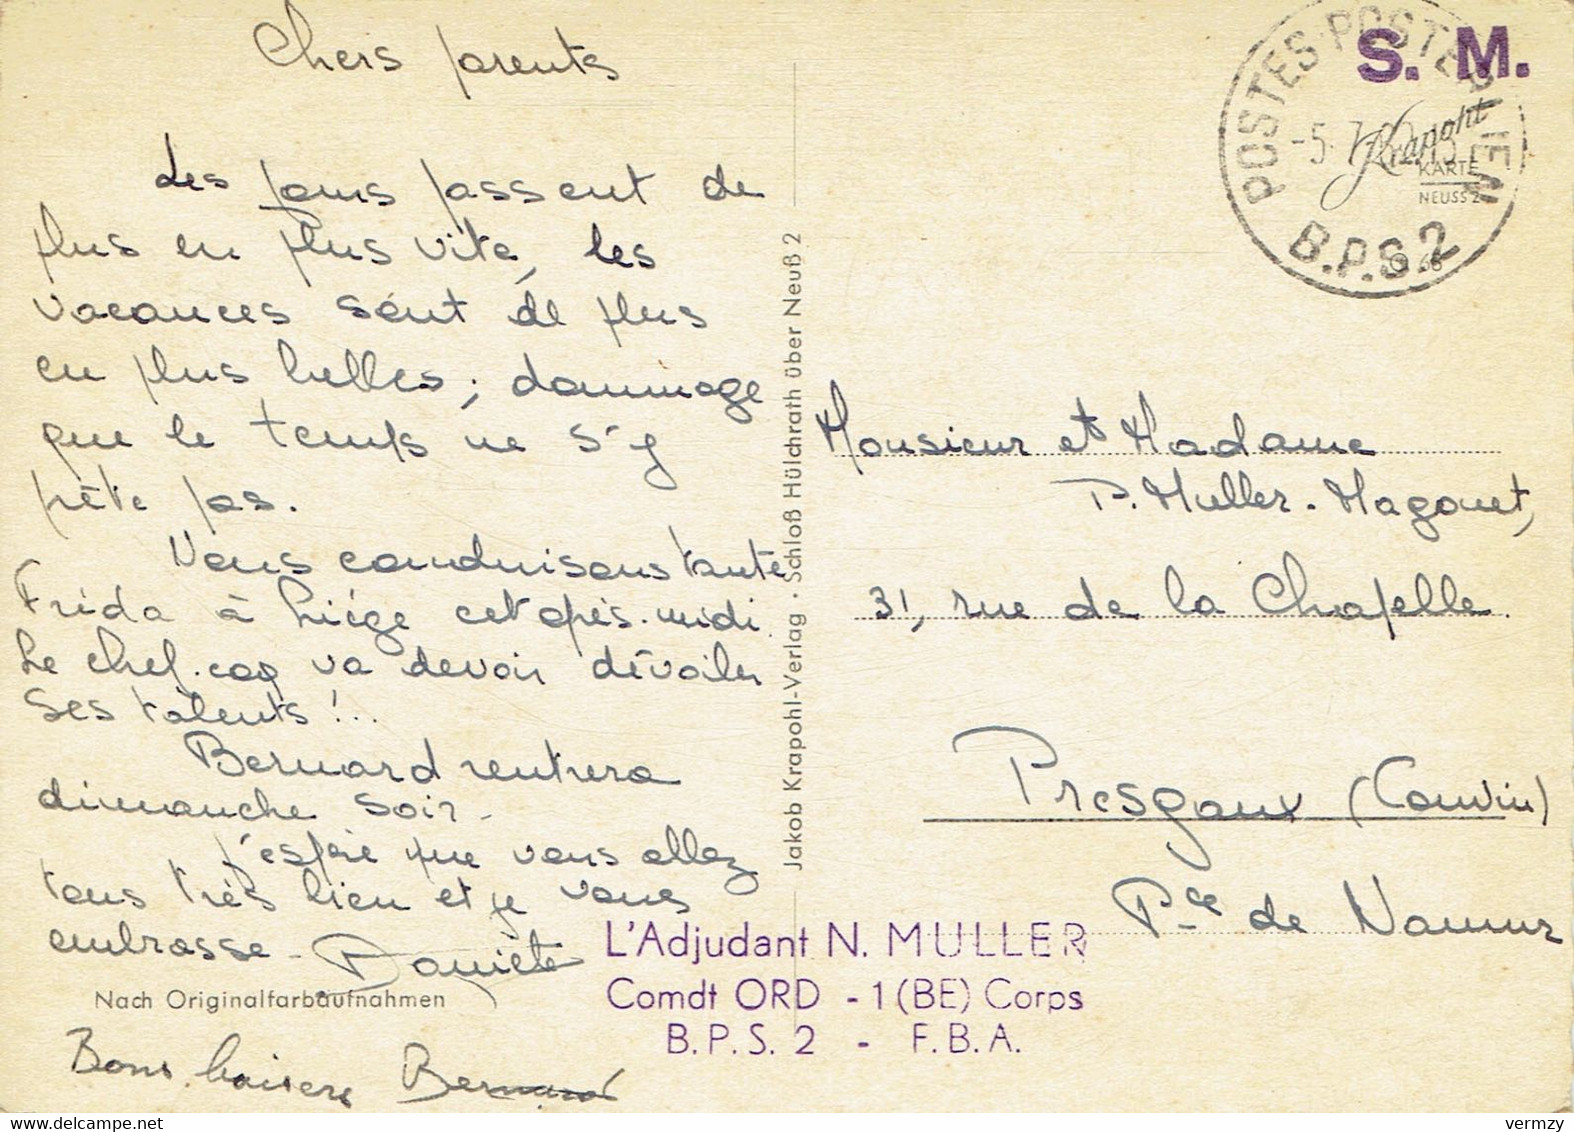 Chers parents
Les jours passent de
plus en plus vite, les
vacances sont de plus
en plus belles, dommage
que le temps ne s'y
prête pas.
Nous conduisons tante
Frida à Liège cet après-midi.
Le chef-coq va devoir dévoiler
ses talents !..
Bernard rentrera
dimanche soir.
J'espère que vous allez
tous très bien et je vous
embrasse - Danièle
Nach Originalfarbaufnahmen
Bons baisers Bernard
Jakob Krapohl-Verlag · Schloß Hülchrath über Neuß 2
S. M.
B.P.S 2
Krapohl
KARTE
NEUSS 2
Monsieur et Madame
P. Muller-Magonet,
31, rue de la Chapelle
Presgaux (Couvin)
Pce de Namur
L'Adjudant N. MULLER
Comdt ORD - 1 (BE) Corps
B.P.S. 2 - F.B.A.
vermzy